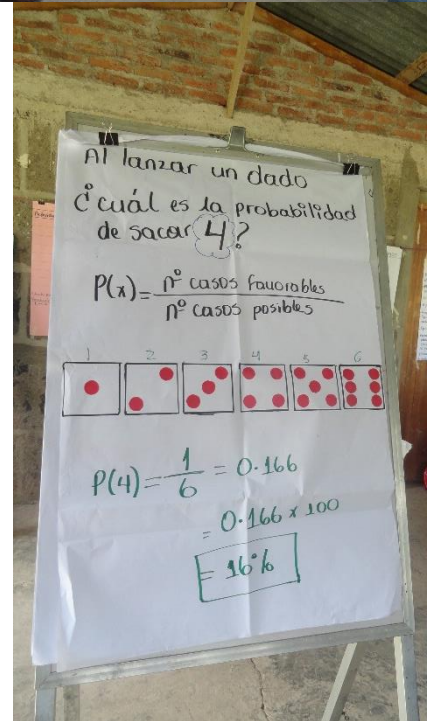 Al lanzar un dado
¿cuál es la probabilidad
de sacar 4?
P(x) = nº casos favorables / nº casos posibles
1 2 3 4 5 6
P(4) = 1/6 = 0.166
= 0.166 x 100
= 16%